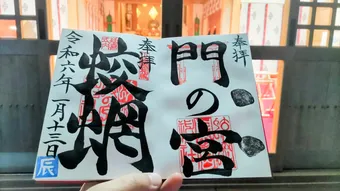 奉拝
門の宮
奉拝
蛟蝄
令和六年一月十三日
辰